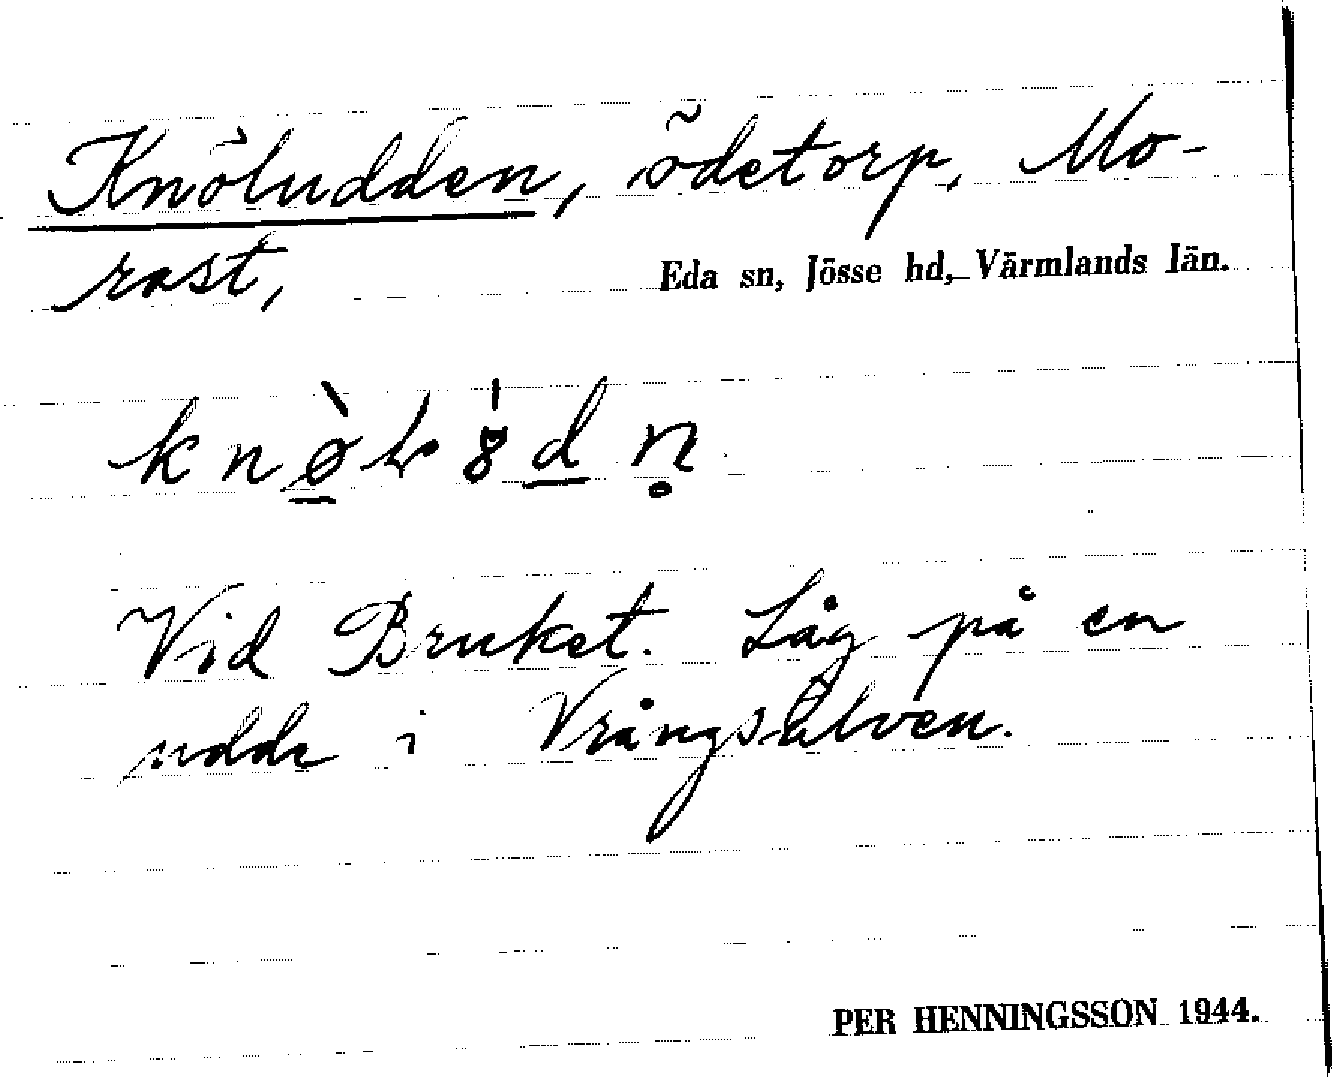 Knöludden, ödetorp, Mo-
rast,
Eda sn, Jösse hd, Värmlands län.
Vid Bruket. Låg på en
udde i Vrångsälven.
PER HENNINGSSON 1944.